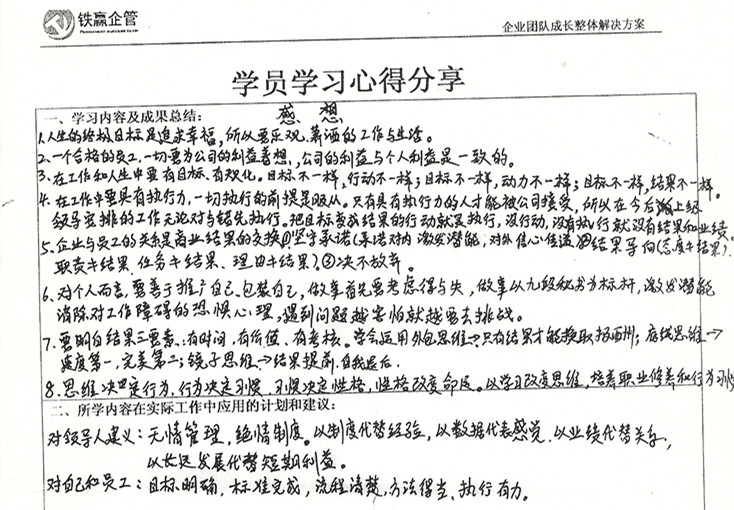 铁赢企管
企业团队成长整体解决方案
学员学习心得分享
一、学习内容及成果总结: 感 想
1.人生的终极目标是追求幸福,所以要乐观、潇洒的工作与生活。
2.一个合格的员工,一切要为公司的利益着想,公司的利益与个人利益是一致的。
3.在工作和人生中要有目标、有观化。目标不一样,行动不一样;目标不一样,动力不一样;目标不一样,结果不一样。
4.在工作中要具有执行力,一切执行的前提是服从。只有具有执行力的人才能被公司接受,所以在今后 上级
领导安排的工作无论对与错先执行。把目标变成结果的行动就是执行,没行动,没有执行就没有结果和业绩
5.企业与员工的关系是商业结果的交换①坚守承诺(承诺对内激发潜能,对外信心传递②结果导向(态度≠结果)
职责≠结果、任务≠结果、理由≠结果)③决不放弃。
6.对个人而言,要善于推广自己、包装自己,做事首先要考虑得与失,做事以九段秘书为标杆,激发潜能
消除对工作障碍的恐惧心理,遇到问题越害怕就越要去挑战。
7.要明白结果三要素:有时间、有价值、有考核。学会运用外包思维→只有结果才能换取报酬;底线思维→
速度第一,完美第二;镜子思维→结果提前,自我退后.
8.思维决定行为,行为决定习惯,习惯决定性格,性格改变命运。以学习改变思维,培养职业修养和行为习惯
二、所学内容在实际工作中应用的计划和建议:
对领导人建议:无情管理,绝情制度。以制度代替经验,以数据代表感觉,以业绩代替关系,
以长远发展代替短期利益。
对自己和员工:目标明确,标准完成,流程清楚,方法得当、执行有力。